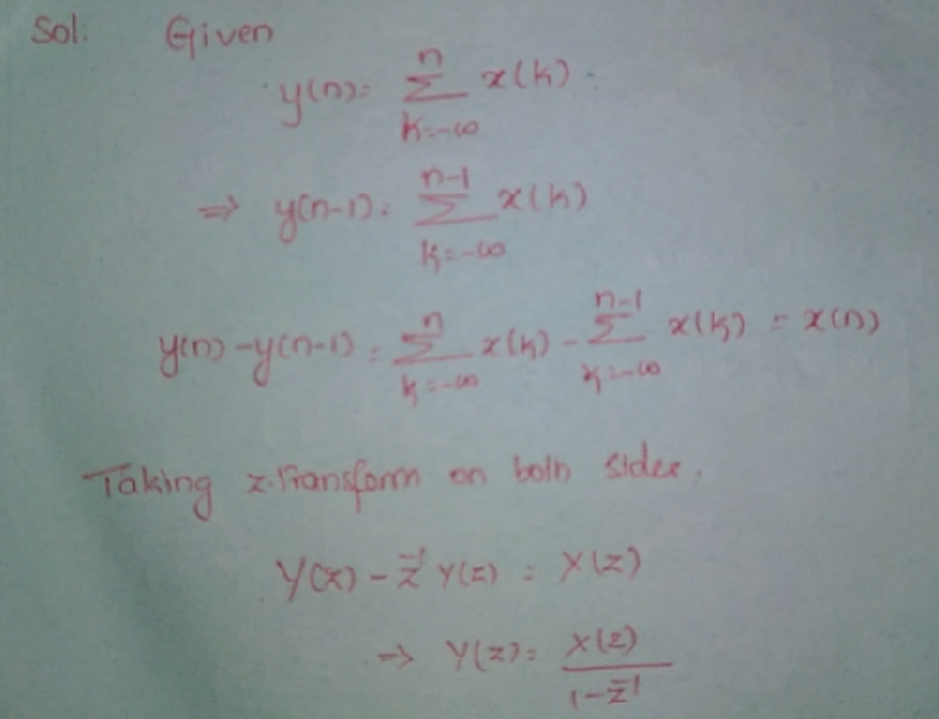 Sol. Given
y(n) = n Σ k=-∞ x(k).
⇒ y(n-1) = n-1 Σ k=-∞ x(k)
y(n) - y(n-1) = n Σ k=-∞ x(k) - n-1 Σ k=-∞ x(k) = x(n)
Taking z-transform on both sides.
Y(z) - z⁻¹ Y(z) = X(z)
⇒ Y(z) = X(z) / 1-z⁻¹